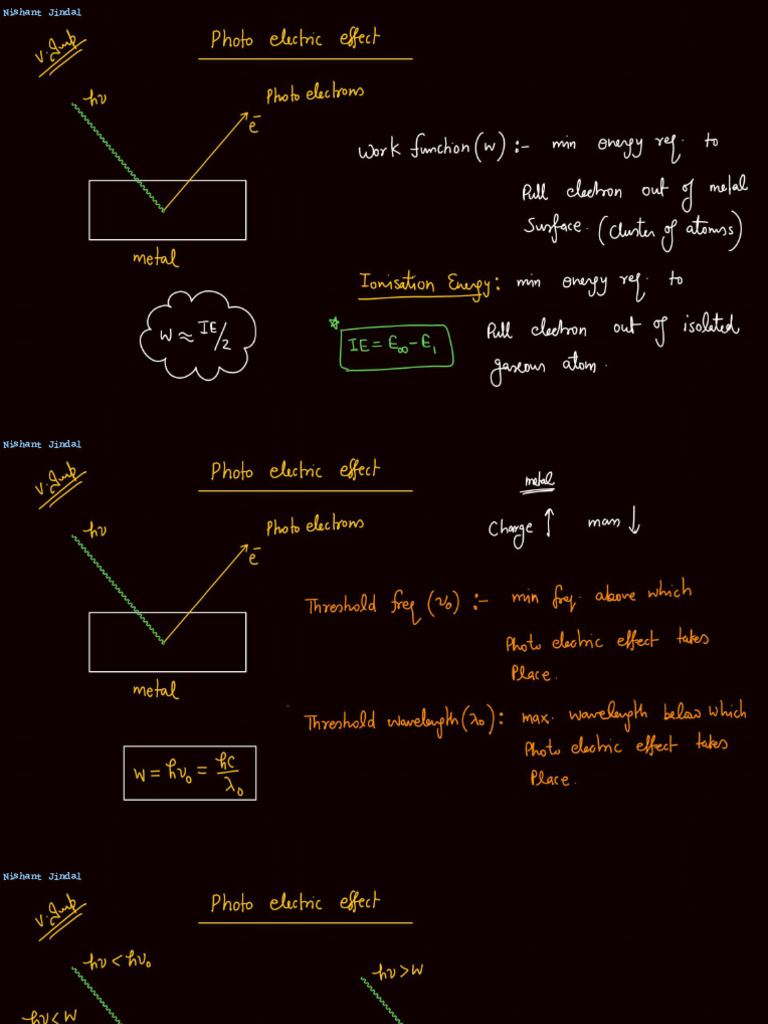 Nishant Jindal
V. Imp
Photo electric effect
hν
Photo electrons
e⁻
Work function (W) :- min energy req. to
Pull electron out of metal
Surface. (Cluster of atoms)
metal
Ionisation Energy: min energy req. to
Pull electron out of isolated
gaseous atom.
W ≈ IE/2
IE = E∞ - E₁
Nishant Jindal
V. Imp
Photo electric effect
metal
Charge ↑ mass ↓
hν
Photo electrons
e⁻
Threshold freq (ν₀) :- min freq. above which
Photo electric effect takes
Place.
metal
Threshold wavelength (λ₀) : max. wavelength below which
Photo electric effect takes
Place.
W = hν₀ = hc/λ₀
Nishant Jindal
V. Imp
Photo electric effect
hν < hν₀
hν > W
hν < W